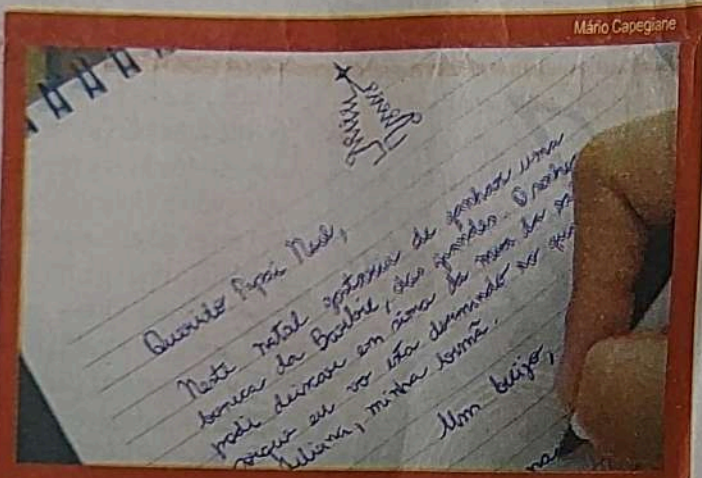 Mário Capegiane
Querido Papai Noel,
Neste natal gostaria de ganhar uma
boneca da Barbie, das grandes. O senhor
pode deixar em cima da mesa da
porque eu vo esta dormindo no
minha irmã.
Um beijo,